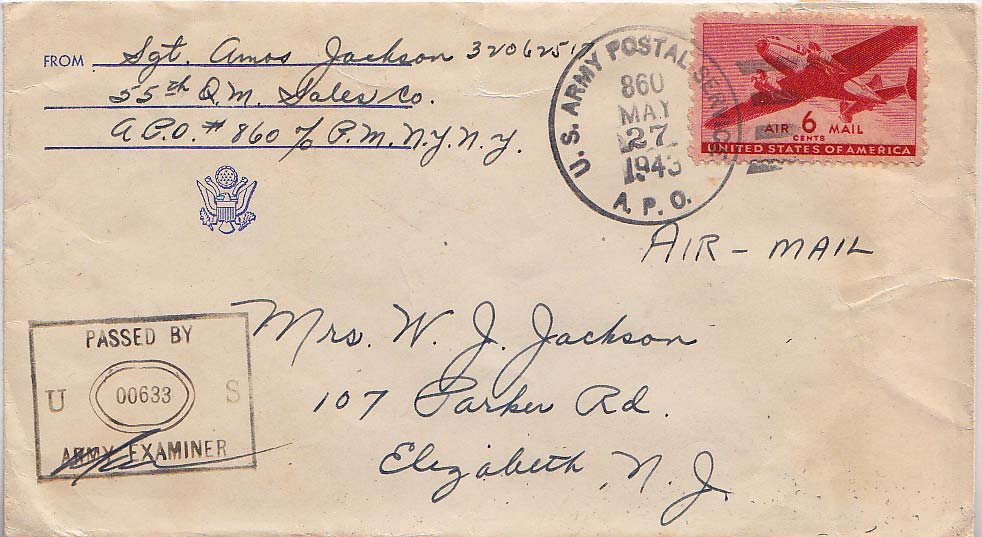 FROM Sgt. Amos Jackson 32062517
55th Q.M. Sales Co.
A.P.O. # 860 % P.M. N.Y. N.Y.
U.S. ARMY POSTAL SERVICE
860
MAY
27
1943
A. P. O.
AIR 6 MAIL
CENTS
UNITED STATES OF AMERICA
AIR-MAIL
PASSED BY
U 00633 S
ARMY EXAMINER
Mrs. W. J. Jackson
107 Parker Rd.
Elizabeth, N. J.